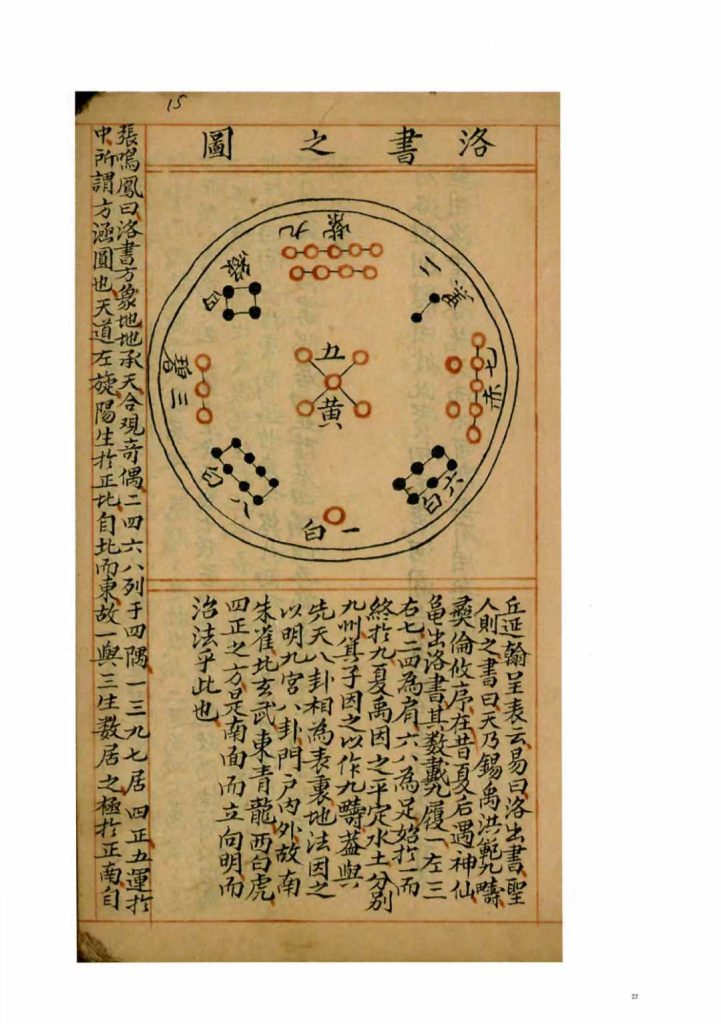 15
洛書之圖
九紫
二
七赤
六白
一白
八白
三碧
四綠
五黃
丘延翰呈表云易曰洛出書聖
人則之書曰天乃錫禹洪範九疇
彞倫攸序在昔夏后遇神仙
龜出洛書其數戴九履一左三
右七二四為肩六八為足始於一而
終於九夏禹因之平定水土分別
九州箕子因之以作九疇葢與
先天八卦相為表裏地法因之
以明九宮八卦門户內外故南
朱雀北玄武東青龍西白虎
四正之方是南面而立向明而
治法乎此也
張鳴鳳曰洛書方象地地承天合觀奇偶二四六八列于四隅一三九七居四正五運於
中所謂方涵圓也天道左旋陽生於正北自北而東故一與三生數居之極於正南自
27